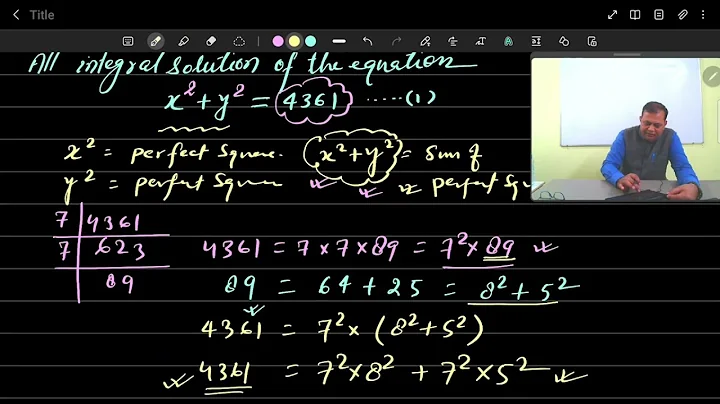 Title
All integral solution of the equation
x² + y² = 4361 .....(1)
x² = perfect Square. x² + y² = Sum of
y² = perfect Square perfect Squ
7 4361
7 623 4361 = 7×7×89 = 7²×89
89 89 = 64 + 25 = 8² + 5²
4361 = 7² × (8² + 5²)
4361 = 7²×8² + 7²×5²